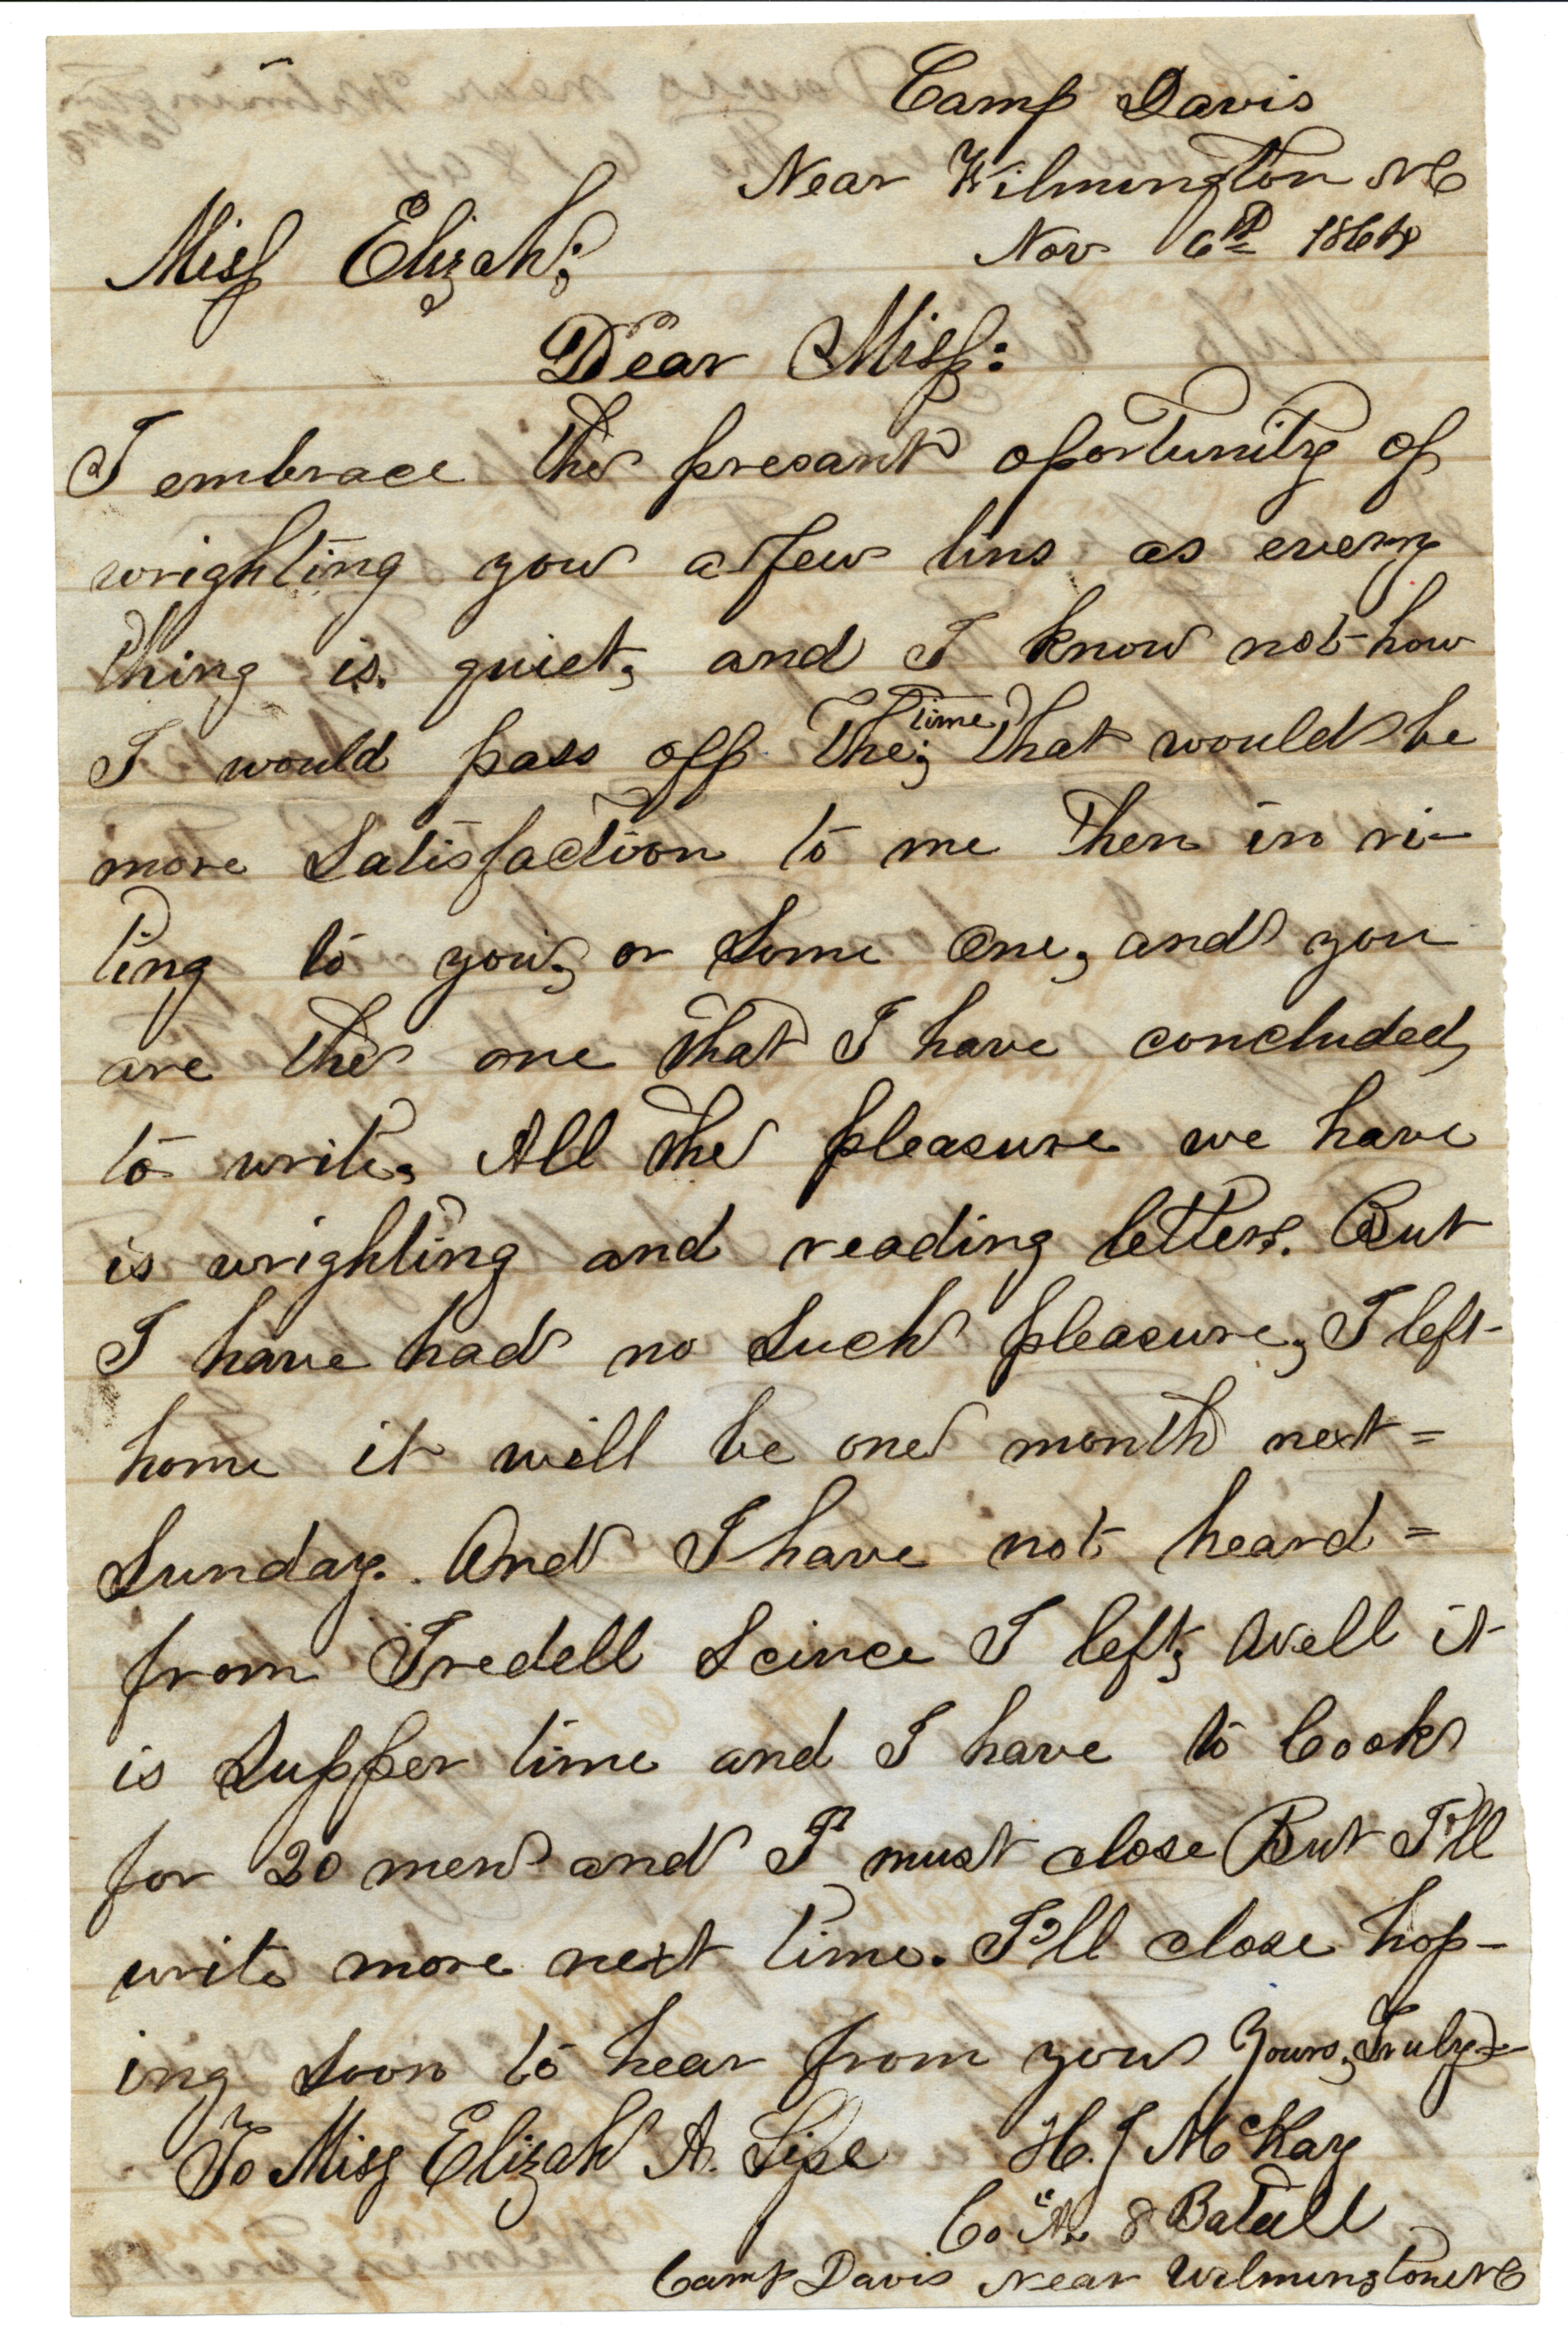 Camp Davis
Near Wilmington NC
Nov 6th 1864
Miss Elizah;
Dear Miss:
I embrace the presant oportunity of
wrighting you a few lins as every
thing is. quiet, and I know not how
I would pass off the; time that would be
more Satisfaction to me then in ri-
ting to you, or Some One, and you
are the one that I have concluded
to write, All the pleasure we have
is wrighting and reading letters. But
I have had no Such pleasure, I left
home it will be one month next =
Sunday. And I have not heard =
from Iredell Scince I left, Well it
is Supper time and I have to Cook
for 20 men and I must close But I'll
write more next time. I'll close hop-
ing Soon to hear from you Yours, Truly
To Miss Elizah A. H. J McKay
Co "A. 8 Batall
Camp Davis Near Wilmington NC